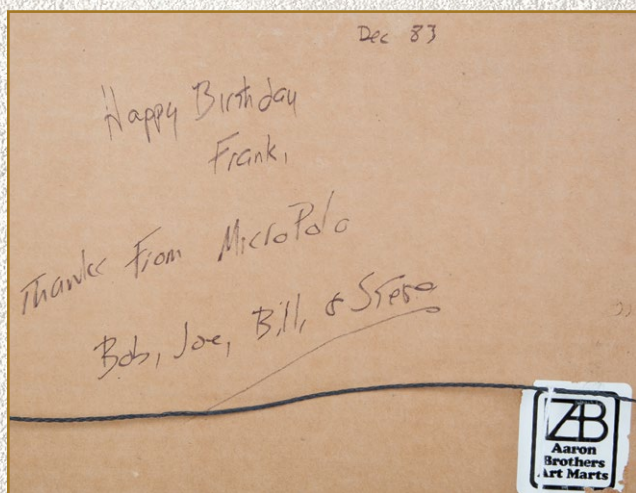 Dec 83
Happy Birthday
Frank,
Thanks From MicroPolo
Bob, Joe, Bill, & Steve
AB
Aaron
Brothers
Art Marts